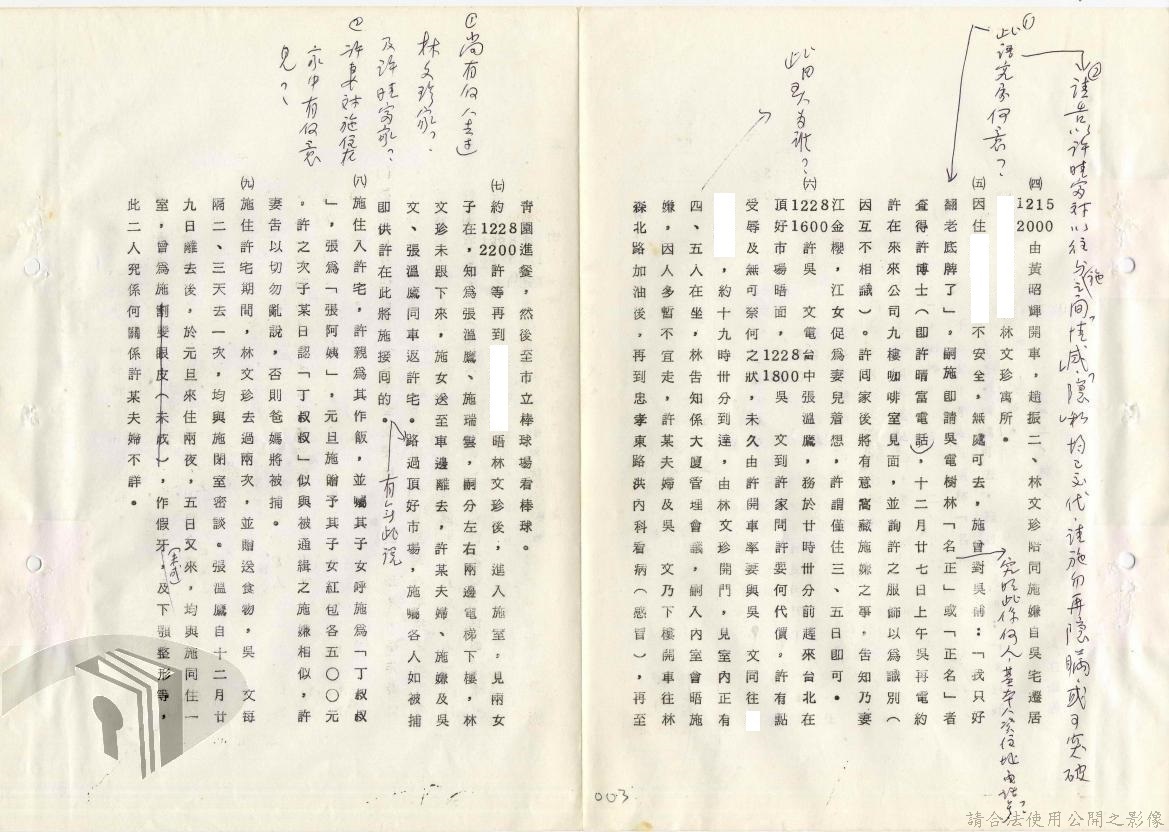 ①此語究係何意？
②請告以許晴富對以往與施之間情感、隱私均已交代，請施勿再隱瞞，或可突破
此男又為誰？
㈣1215 2000由黃昭輝開車，趙振二、林文珍陪同施嫌自吳宅遷居
林文珍寓所。
㈤因住　　不安全，無處可去，施曾對吳稱：「我只好
翻老底牌了」，嗣施即請吳電樹林「名正」或「正名」者
查得許博士（即許晴富電話），十二月廿七日上午吳再電約
許在來來公司九樓咖啡室見面，並詢許之服飾以為識別（
因互不相識）。許同家後將有意窩藏施嫌之事，告知乃妻
江金櫻，江女促為妻兒着想，許謂僅住三、五日即可。
㈥1228 1600許吳　文電台中張溫鷹，務於廿時卅分前趕來台北在
頂好市場晤面，1228 1800吳　文到許家問許要何代價，許有點
受辱及無可奈何之狀，未久由許開車率妻與吳　文同往
　　，約十九時卅分到達，由林文珍開門，見室內正有
四、五人在坐，林告知係大厦管理會議，嗣入內室會晤施
嫌，因人多暫不宜走，許某夫婦及吳　文乃下樓開車往林
森北路加油後，再到忠孝東路洪內科看病（感冒），再至
究明此係何人，基本人資住址電話等？
003
①尚有何人去過
林文珍家？
及許晴富家？
②許妻對施住在
家中有何意
見？
青園進餐，然後至市立棒球場看棒球。
㈦約1228 2200許等再到　　晤林文珍後，進入施室，見兩女
子在，知為張溫鷹、施瑞雲，嗣分左右兩邊電梯下樓，林
文珍未跟下來，施女送至車邊離去，許某夫婦、施嫌及吳
文、張溫鷹同車返許宅。路過頂好市場，施囑各人如被捕
即供許在此將施接回的。
有無此說
㈧施住入許宅，許親為其作飯，並囑其子女呼施為「丁叔叔
」，張為「張阿姨」，元旦施贈予其子女紅包各五〇〇元
。許之次子某日認「丁叔叔」似與被通緝之施嫌相似，許
妻告以切勿亂說，否則爸媽將被捕。
㈨施住許宅期間，林文珍去過兩次，並贈送食物，吳　文每
隔二、三天去一次，均與施閉室密談。張溫鷹自十二月廿
九日離去後，於元旦來住兩夜，五日又來，均與施同住一
室，曾為施割雙眼皮（未成），作假牙，及下顎整形等，
此二人究係何關係許某夫婦不詳。
請合法使用公開之影像